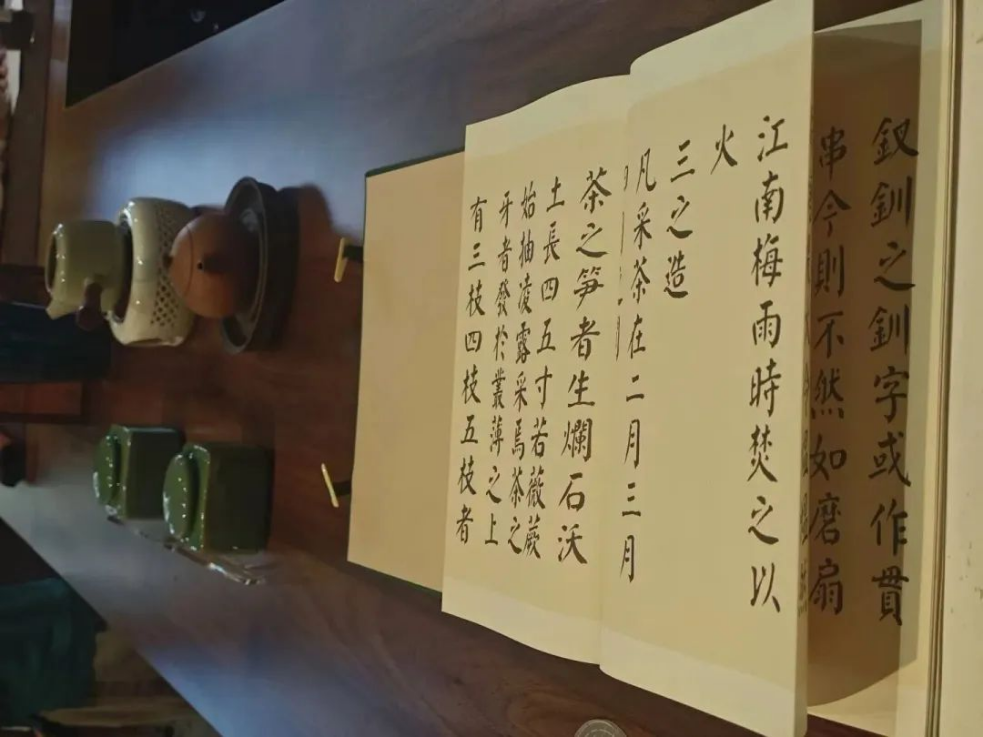 釵釧之釧字或作貫
串今則不然如磨扇
江南梅雨時焚之以
火
三之造
凡采茶在二月三月
茶之笋者生爛石沃
土長四五寸若薇蕨
始抽凌露采焉茶之
牙者發於叢薄之上
有三枝四枝五枝者